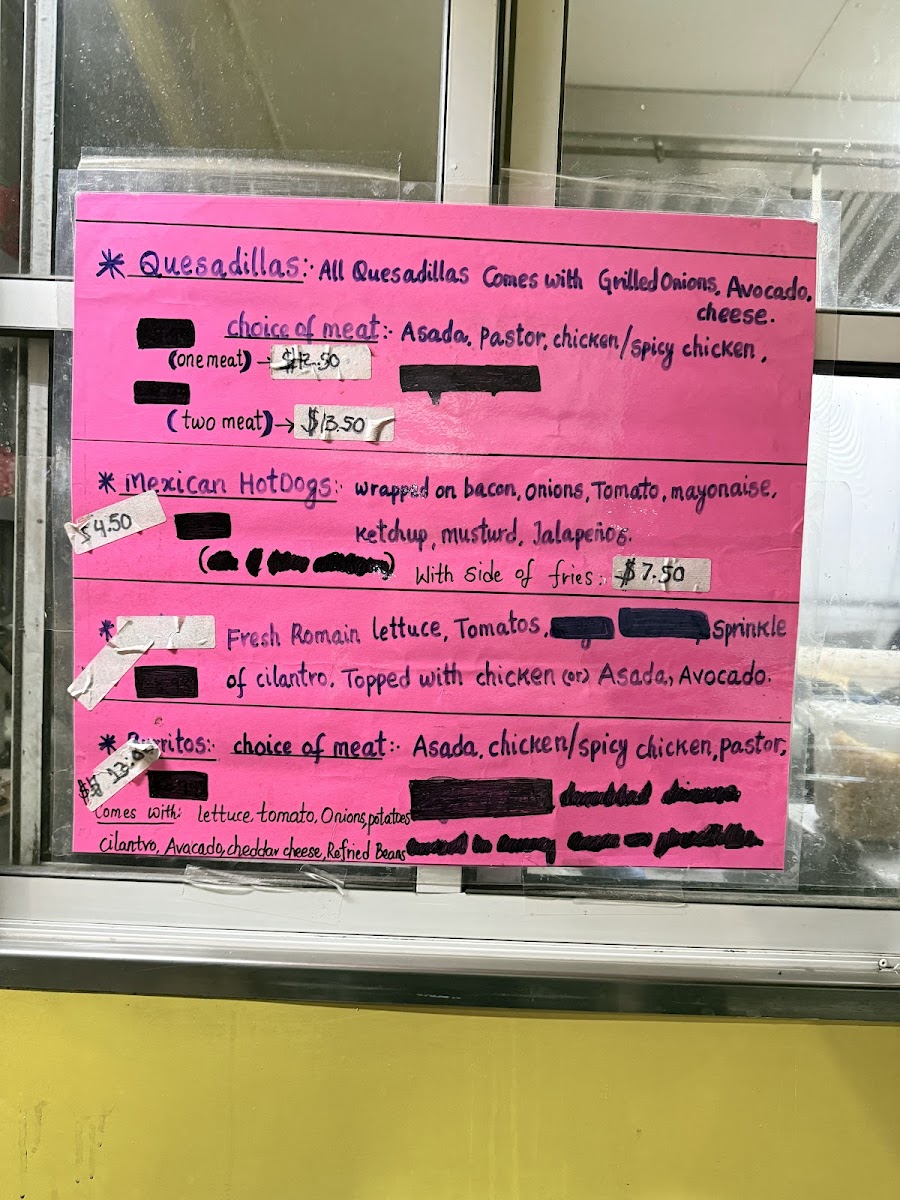 * Quesadillas:· All Quesadillas Comes with Grilled Onions, Avocado,
cheese.
choice of meat:· Asada, Pastor, chicken/spicy chicken,
(one meat) → $12.50
(two meat) → $13.50
* Mexican HotDogs: wrapped on bacon, onions, Tomato, mayonaise,
$4.50
Ketchup, musturd, Jalapeños.
With side of fries: $7.50
* Fresh Romain lettuce, Tomatos, Sprinkle
of cilantro. Topped with chicken (or) Asada, Avocado.
* Burritos: choice of meat:· Asada, chicken/spicy chicken, pastor,
Comes With: lettuce, tomato, Onions, potatoes
cilantro, Avacado, cheddar cheese, Refried Beans